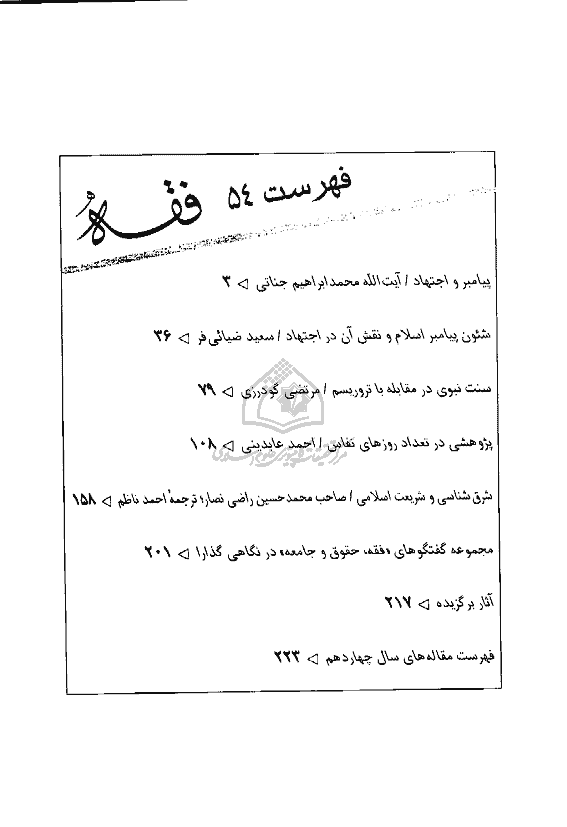 فهرست ۵۴ فقه
پیامبر و اجتهاد / آیت‌الله محمدابراهیم جناتی ◁ ۳
شئون پیامبر اسلام و نقش آن در اجتهاد / سعید ضیائی‌فر ◁ ۳۶
سنت نبوی در مقابله با تروریسم / مرتضی گودرزی ◁ ۷۹
پژوهشی در تعداد روزهای نفاس / احمد عابدینی ◁ ۱۰۸
شرق شناسی و شریعت اسلامی / صاحب محمدحسین راضی نصار؛ ترجمهٔ احمد ناظم ◁ ۱۵۸
مجموعه گفتگوهای «فقه، حقوق و جامعه» در نگاهی گذارا ◁ ۲۰۱
آثار برگزیده ◁ ۲۱۷
فهرست مقاله‌های سال چهاردهم ◁ ۲۲۳